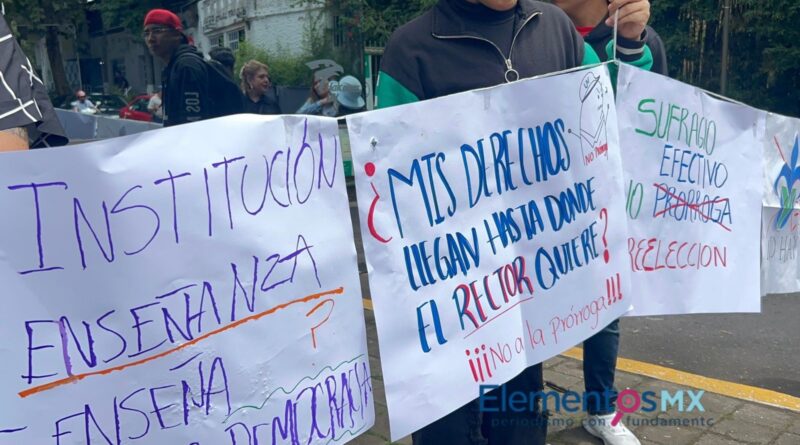 INSTITUCIÓN
ENSEÑANZA
?
- ENSEÑA
DEMOCRACIA
¿MIS DERECHOS
LLEGAN HASTA DONDE
EL RECTOR QUIERE?
¡¡¡No a la Prórroga!!!
NO
SUFRAGIO
EFECTIVO
NO PRÓRROGA
REELECCIÓN
LOS
ElementosMX
periodismo con fundamento